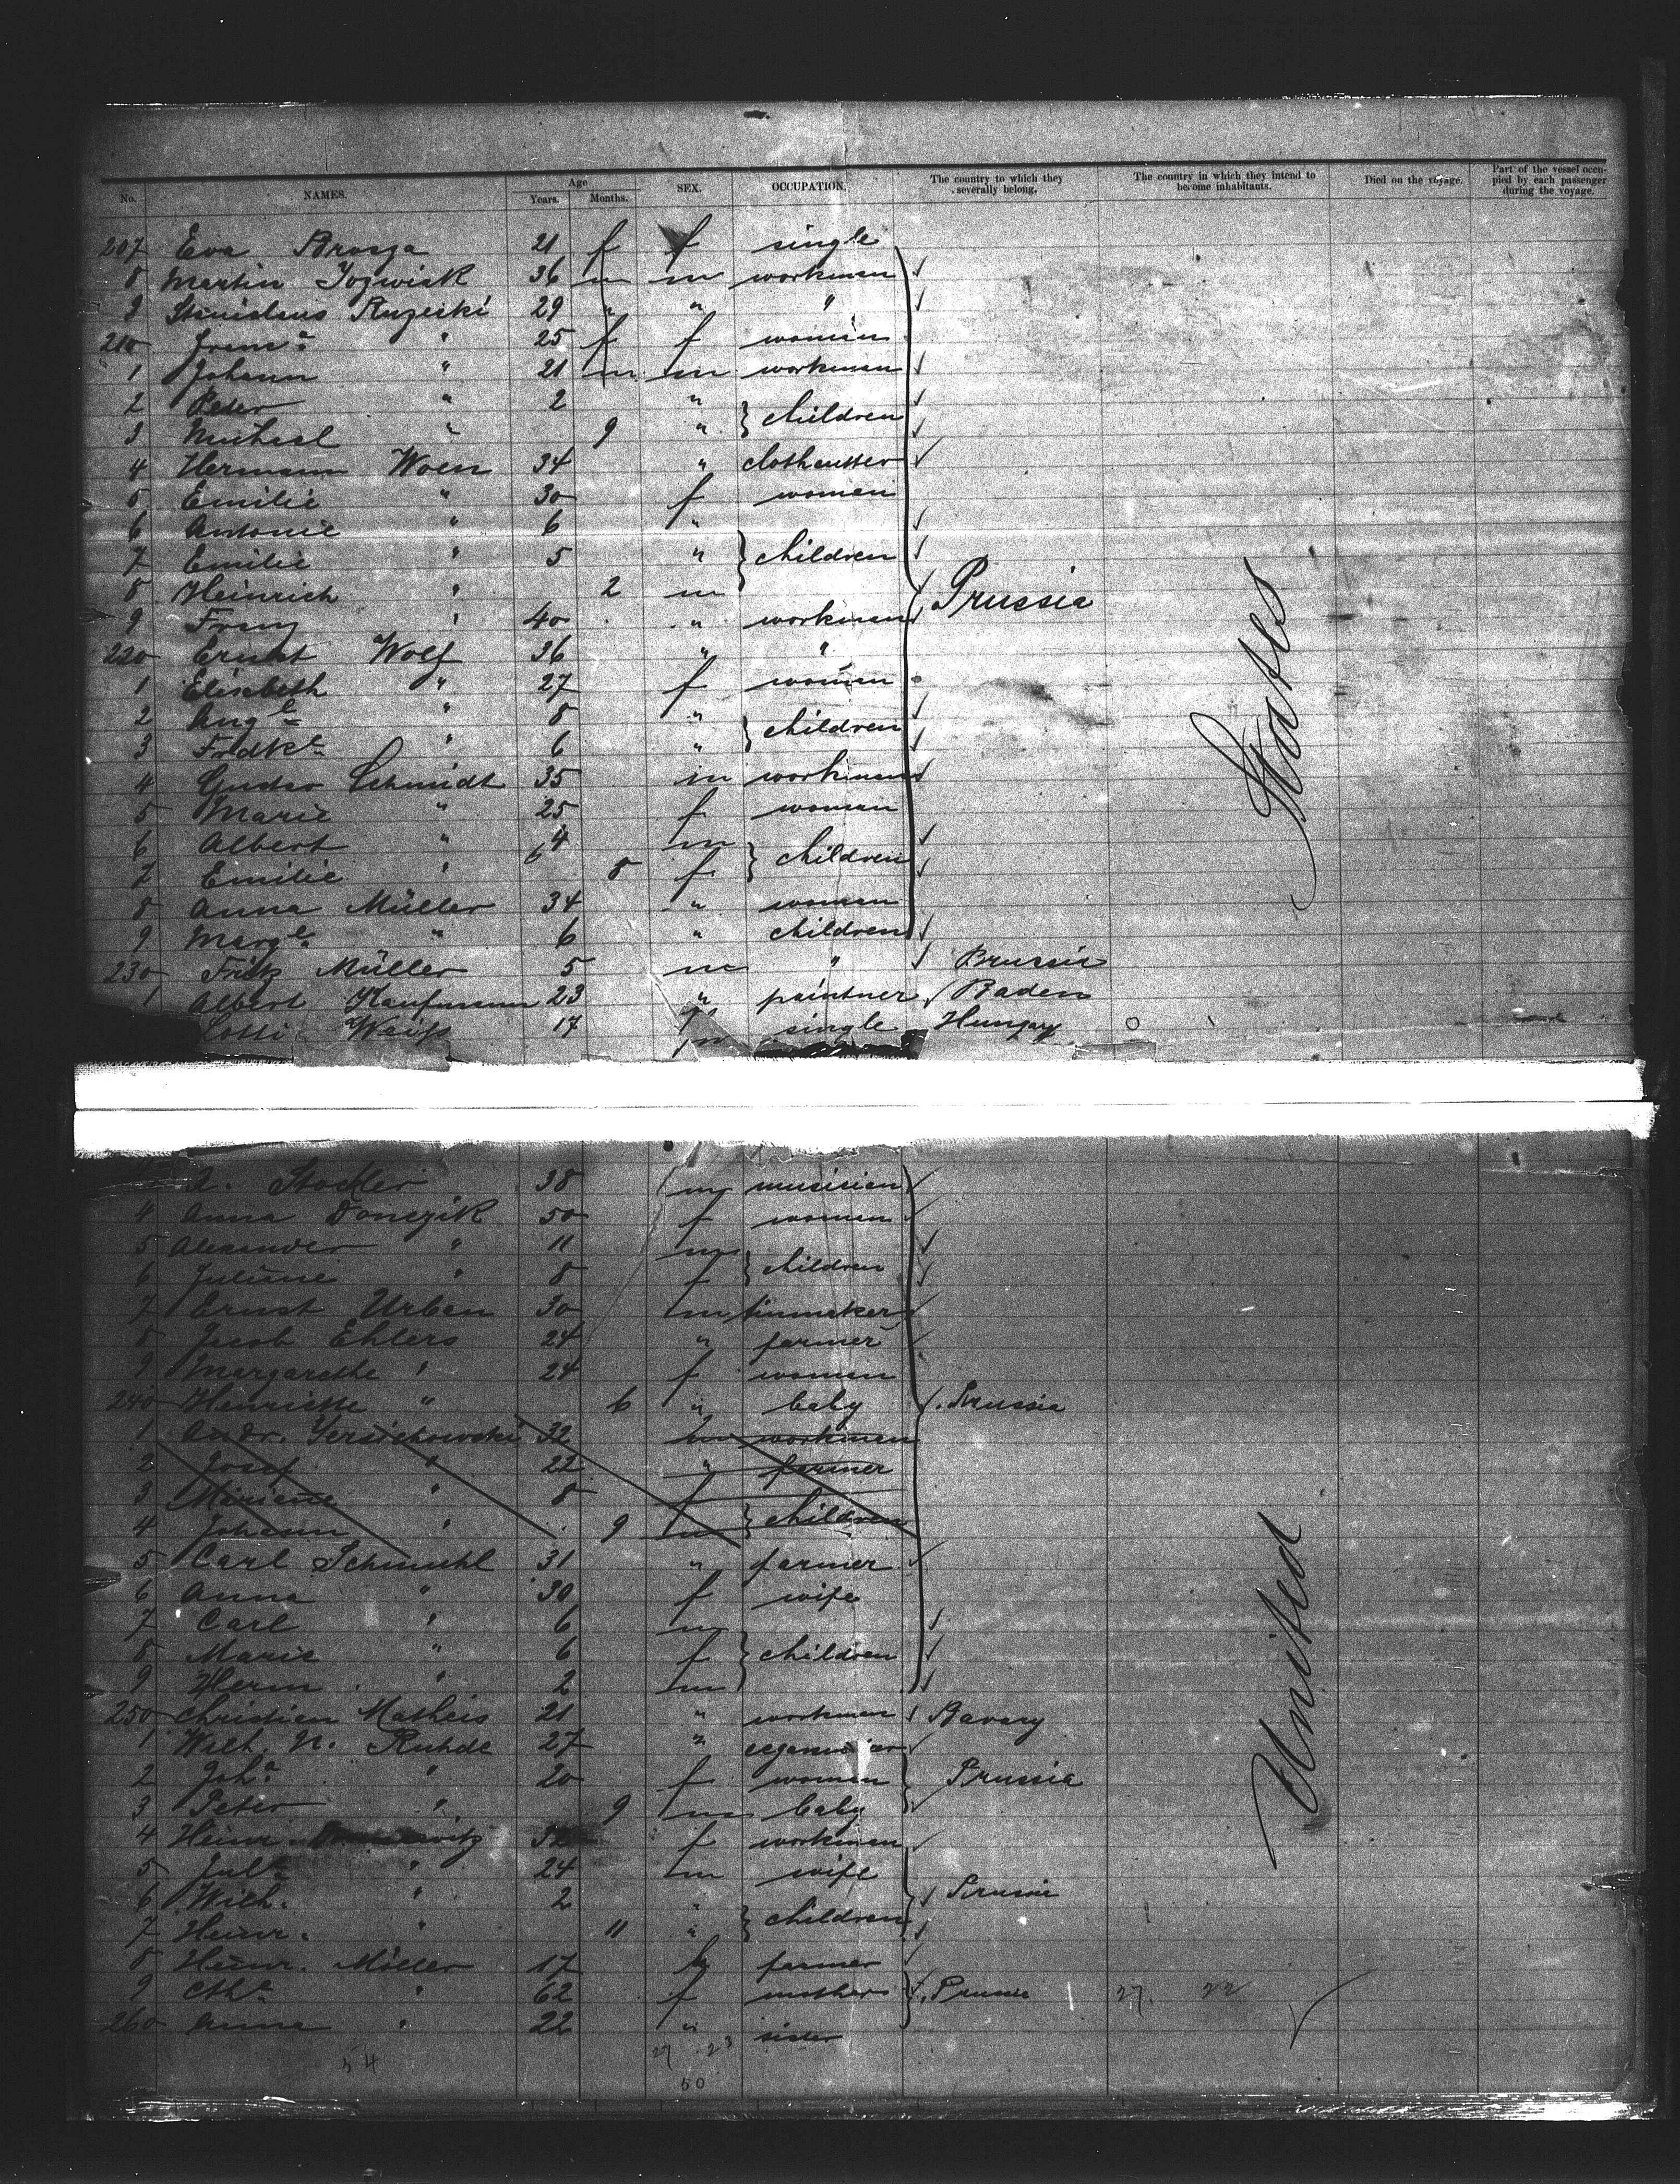 No. NAMES. Age Years. Months. SEX. OCCUPATION. The country to which they severally belong. The country in which they intend to become inhabitants. Died on the voyage. Part of the vessel occupied by each passenger during the voyage.
207 Eva 21 f f single
8 Martin 36 m m workman
9 Stanislaus 29 " " "
210 " 25 f f women
1 Johann " 21 m m workman
2 Peter " 2 "
children
3 Michael " 9 "
4 Hermann Woen 34 " clothcutter
5 Emilie " 30 f women
6 Antonie " 6 "
7 Emilie " 5 " children
8 Heinrich " 2 m
Prussia
9 Franz " 40 " workman
220 Ernst Wolf 36 " "
1 Elisabeth " 27 f women
2 Aug.e " 8 "
children
3 Fredke " 6 "
4 Gustav Schmidt 35 m workman
5 Marie " 25 f woman
6 Albert " 4 m
children
7 Emilie " 8 f
8 Anna Müller 34 " woman
9 Marg.e " 6 " children
230 Fritz Müller 5 m " Prussia
1 Albert Kaufmann 23 " paintner Baden
Weiss 17 single Hungary
States
38 m musician
4 Anna Donczik 50 f women
5 Alexander " 11 m
children
6 Juliane " 8 f
7 Ernst Urban 30 m
8 Jacob Ehlers 24 " farmer
9 Margarethe " 24 f women
240 Henriette " 6 " baby Prussia
1 Andr. 32 m workman
2 Josef " 22 " farmer
3 Mariane " 8 f
children
4 Johann " 9 m
5 Carl Schmuhl 31 " farmer
6 Anna " 30 f wife
7 Carl " 6 m
8 Marie " 6 f children
9 Herm. " 2 m
250 Christian Matheis 21 " workman Bavary
1 Wilh. N. Ruhde 27 "
2 Joh.a " 20 f women Prussia
3 Peter " 9 m baby
4 Heinr. 32 f workman
5 Jul.e " 24 m wife
6 Wilh. " 2 " Prussia
children
7 Heinr. " 11 "
8 Heinr. Möller 17 m farmer
9 Cth.a " 62 f mother Prussia 27. 22
260 Anna " 22 " sister
27 23
54
50
United